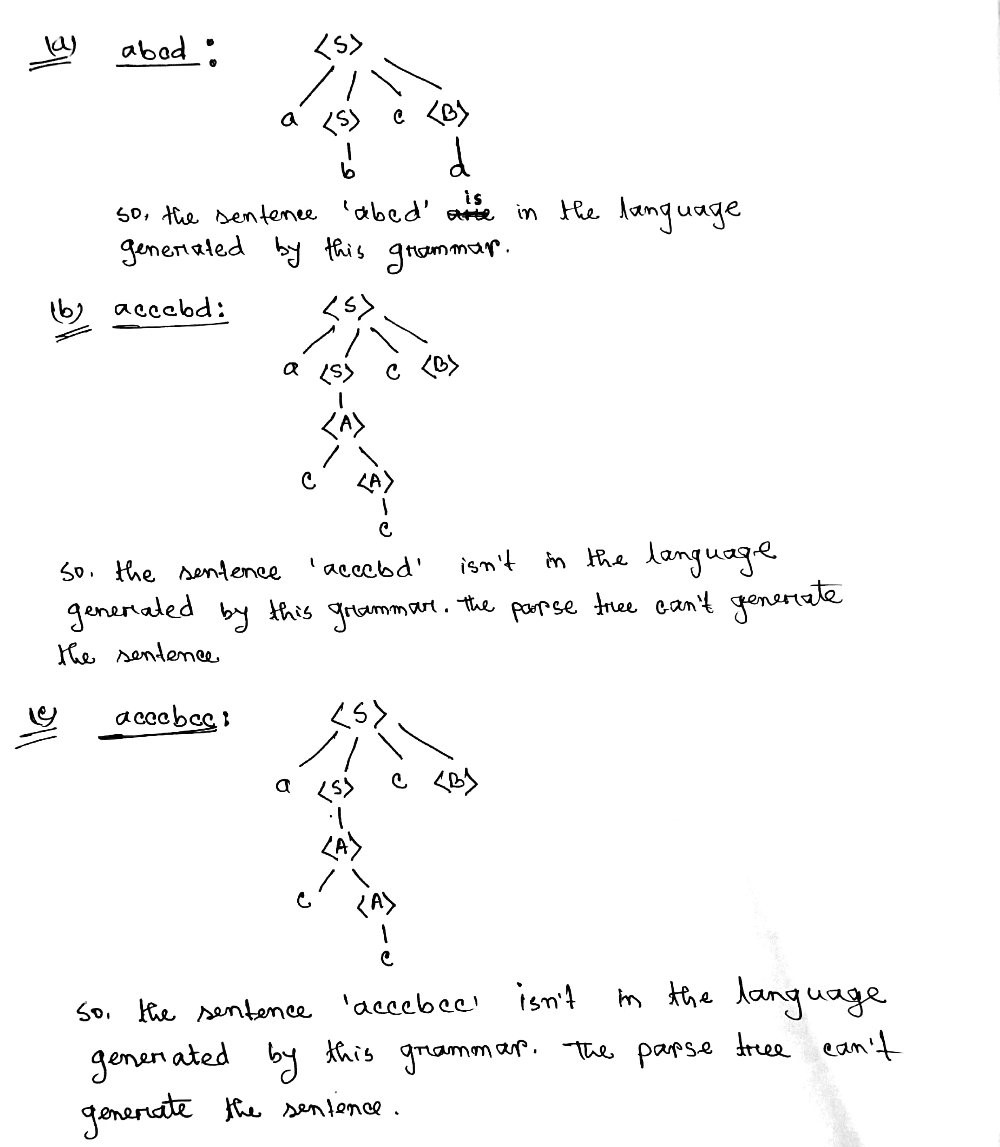 (a) abcd :
<S>
a <S> c <B>
b d
so, the sentence 'abcd' is in the language
generated by this grammar.
(b) acccbd:
<S>
a <S> c <B>
<A>
c <A>
c
so, the sentence 'acccbd' isn't in the language
generated by this grammar. The parse tree can't generate
the sentence
(c) acccbcc:
<S>
a <S> c <B>
<A>
c <A>
c
so, the sentence 'acccbcc' isn't in the language
generated by this grammar. The parse tree can't
generate the sentence.